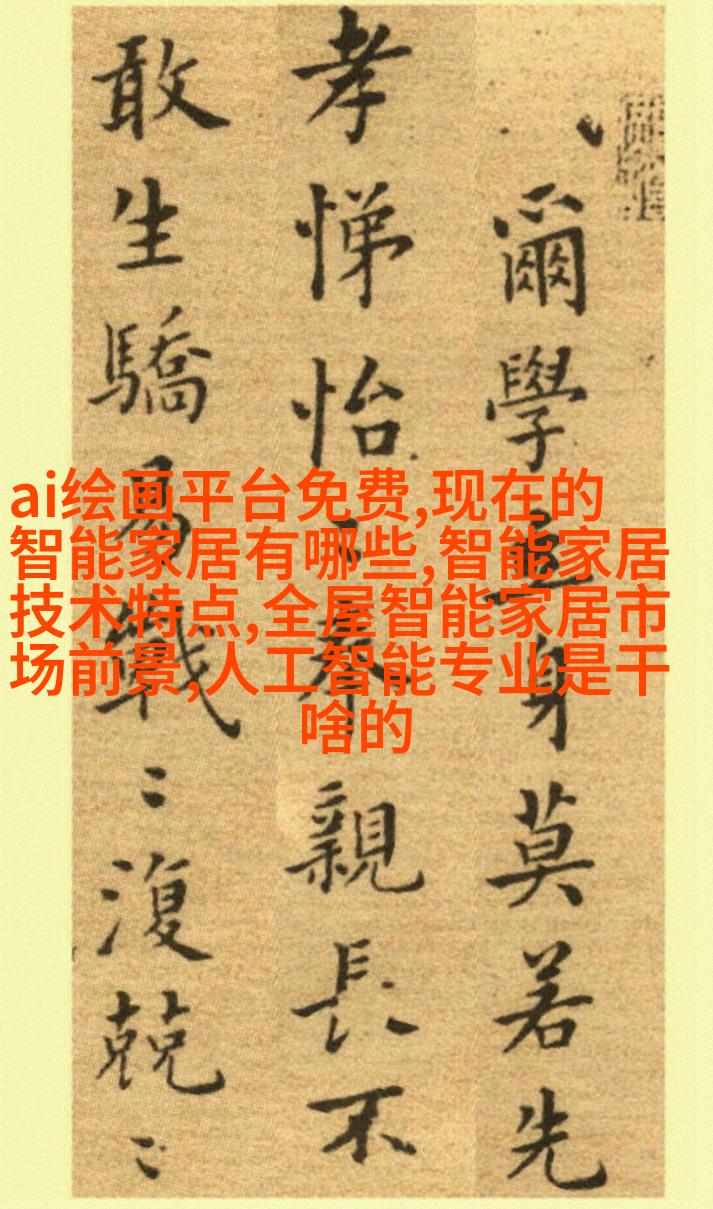 爾學立身莫若先
孝悌怡〻奉親長不
敢生驕易戰〻復兢〻
ai绘画平台免费,现在的
智能家居有哪些,智能家居
技术特点,全屋智能家居市
场前景,人工智能专业是干
啥的